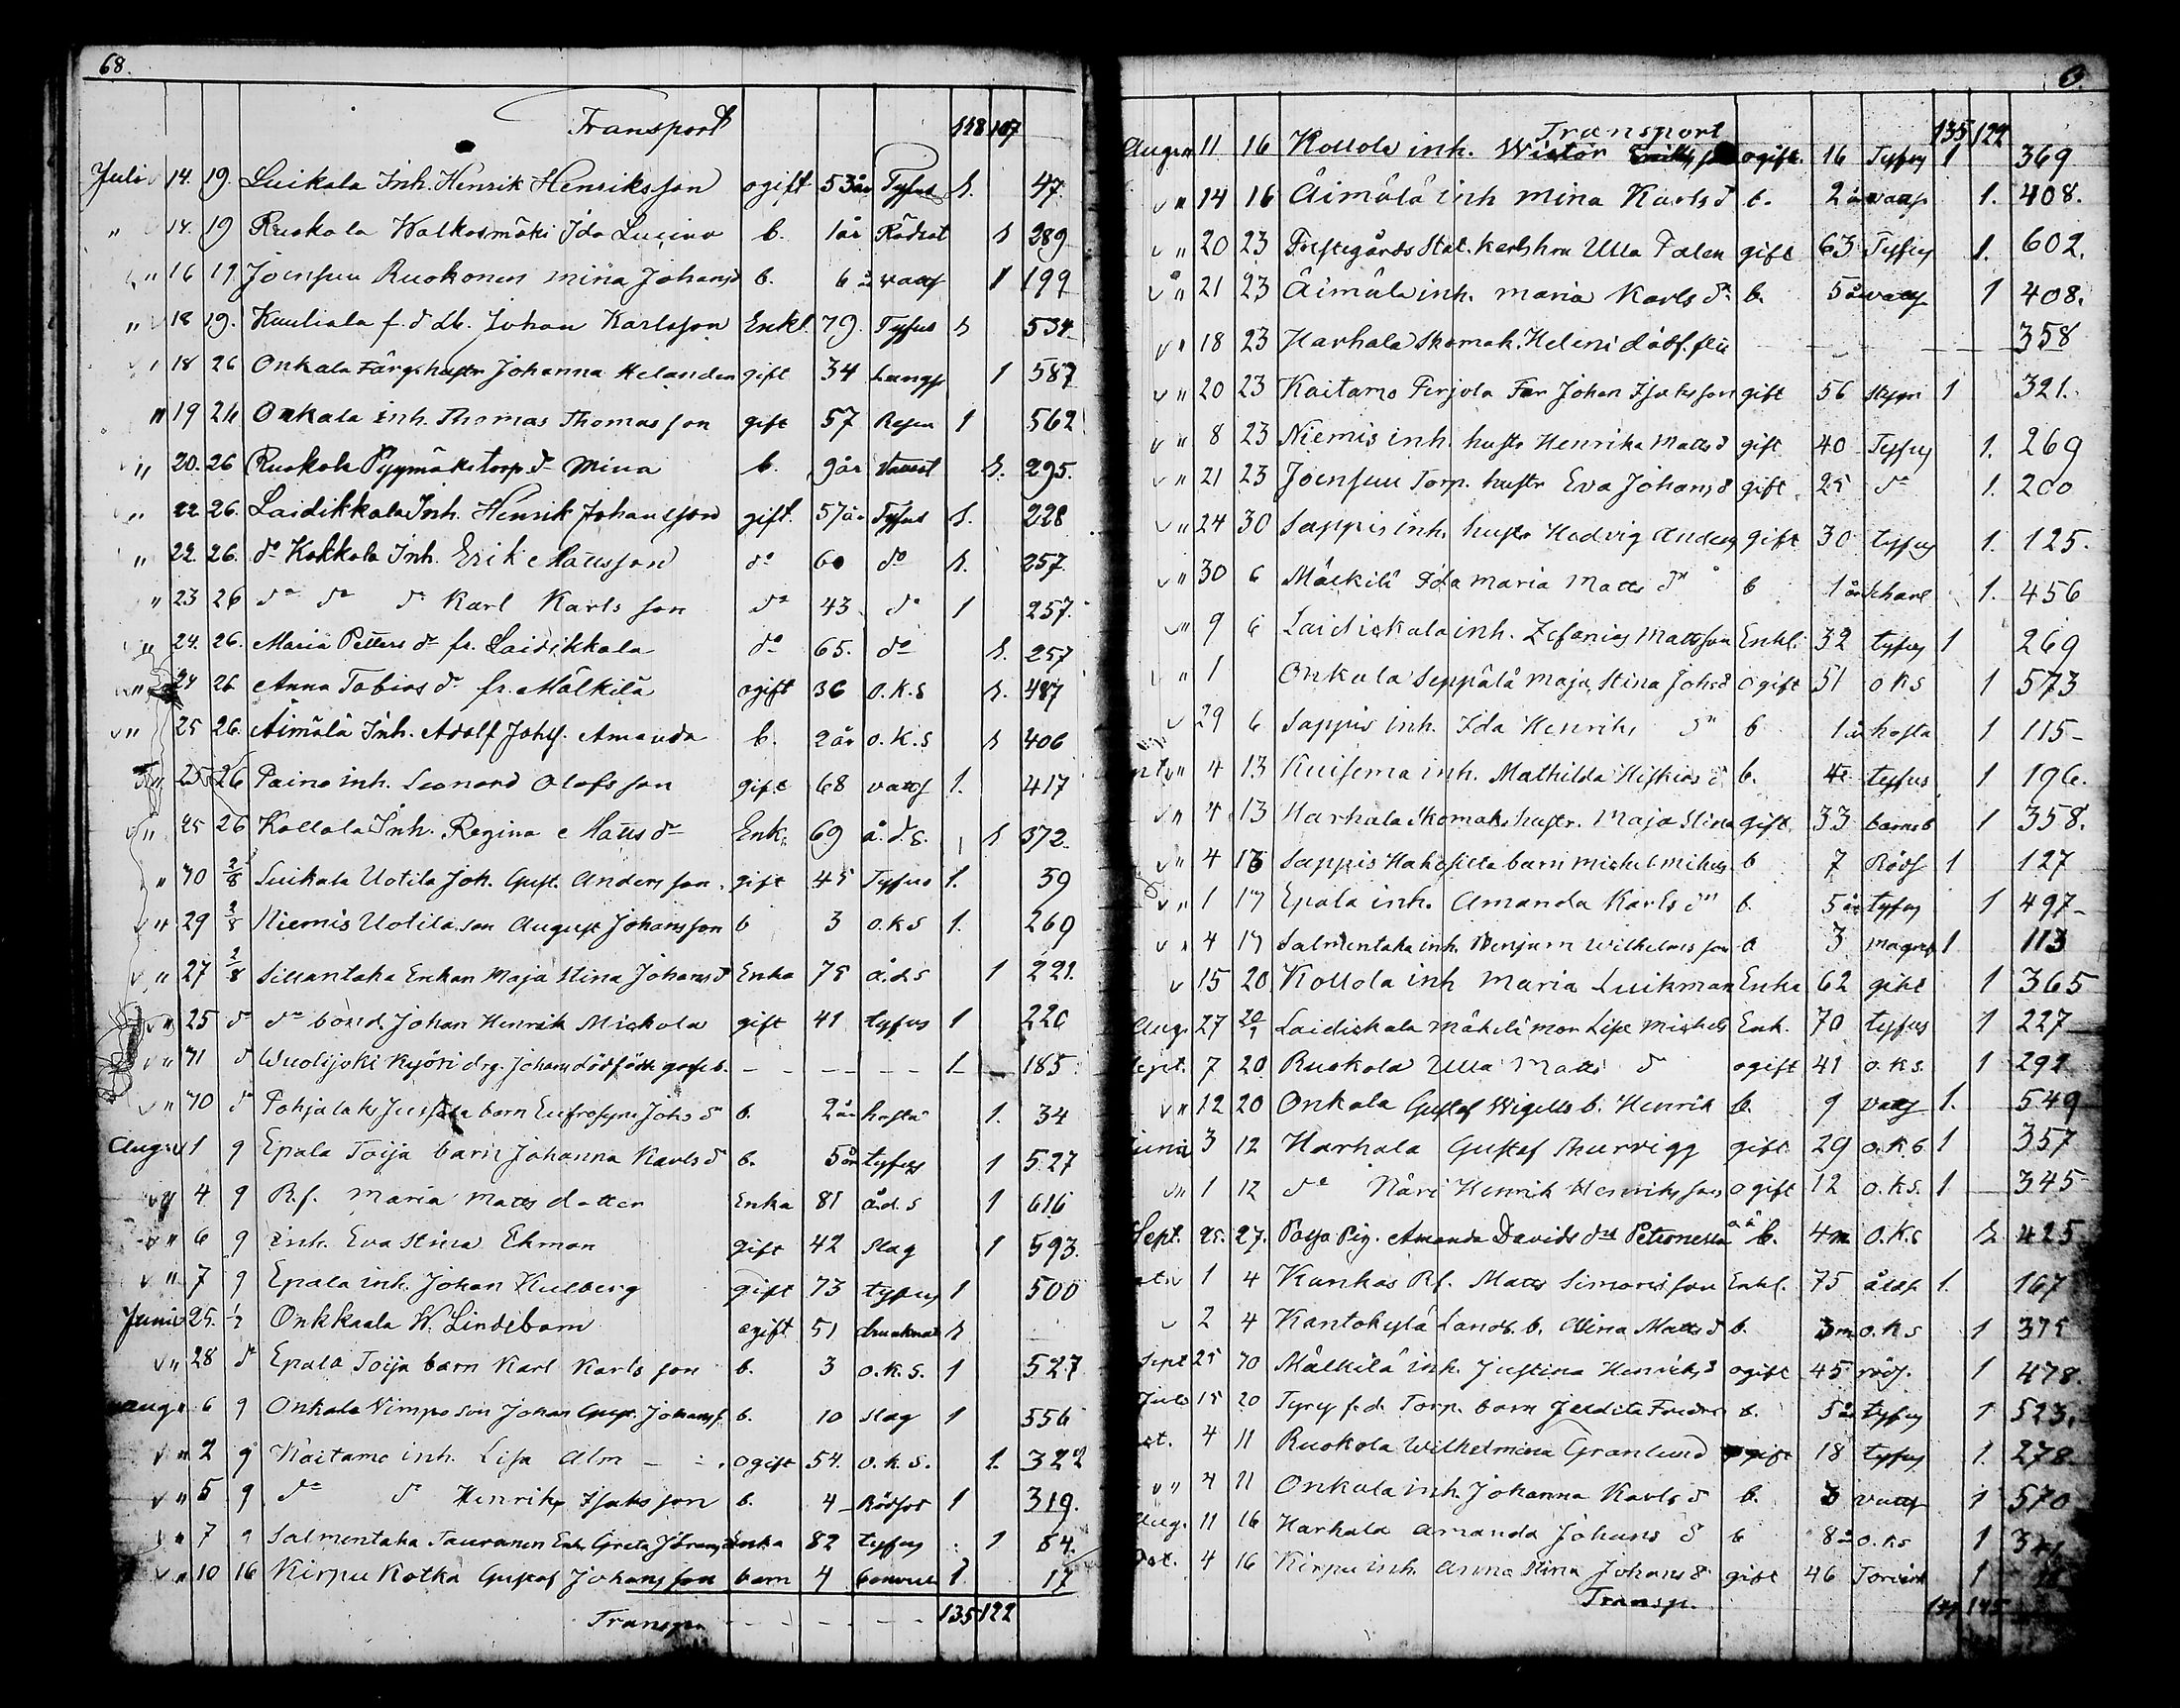 68.
Transport 118 107
Juli 14. 19. Luikala Inh. Henrik Henriksson ogift 53 år Tyfus 1. 47.
" 14. 19 Ruokala Walkosmäki Ida Lucina b. 1 år Rödsot 1 289
" 16 19 Joensuu Ruokonen Mina Johansd b. 6 år vatts 1 199
" 18 19. Kauliala f.d. Johan Karlsson Enkl. 79. Tyfus 1 534
" 18 26 Onkala Färgs hustr Johanna Helander gift 34 Lungs 1 587
" 19 26 Onkala inh. Thomas Thomasson gift 57 1 562
" 20. 26 Ruokola Pyymäki torp. dr Mina b. 9 år 1. 295.
" 22 26. Laidikkala Inh. Henrik Johansson gift. 57 år Tyfus 1. 228
" 22. 26. do Kokkola Inh. Erik Mattsson do 60 do 1. 257.
" 23 26 do do do Karl Karlsson do 43 do 1 257.
" 24. 26. Maria Petters dr fr. Laidikkala do 65. do 1. 257
" 24 26 Anna Tobias dr fr. Mälkilä ogift 36 o.k.s 1. 487
" 25 26. Äimälä Inh. Adolf Johss. Amanda b. 2 år o.k.s 1 406
" 25 26 Paino inh. Leonard Olofsson gift 68 vatts 1. 417
" 25 26 Kollola Inh. Regina Matts dr Enk. 69 å.d.s. 1 372.
" 30 2/8 Luikala Uotila Joh. Gust. Andersson. gift 45 Tyfus 1. 39
" 29 2/8 Niemis Uotila son August Johansson b 3 o.k.s 1. 269
" 27 2/8 Sillantaka Enkan Maja Stina Johansd Enka 75 å.d.s 1 221.
" 25 do do bond. Johan Henrik Mickola gift 41 tyfus 1 220
" 31 d Wuolijoki Kyöri drg. Johans dödfödt goseb. - - - - 1 - 185.
" 30 do Pohjalaks Jussila barn Eufrosyne Johs d b. 2 år hosta 1. 34
Aug. 1 9 Epala Toija barn Johanna Karls d b. 5 år tyfus 1 527
" 4 9 R.f. Maria Matts dotter Enka 81 å.d.s 1 616
" 6 9 inh. Eva Stina Ekman gift 42 slag 1 593.
" 7 9 Epala inh. Johan Kulberg gift 73 tyfus 1 500
Juni 25. Onkkaala W. Lindebom ogift 51 drunknat 1
" 28 do Epala Toija barn Karl Karlsson b. 3 o.k.s. 1 527
aug. 6 9 Onkala Nimpo son Johan Gust. Johanss. b. 10 slag 1 556
" 2 9 Kaitamo inh. Lisa Alm - - ogift 54. o.k.s. 1. 322
" 5 9 do do Henrik Isaksson b. 4 Rödsot 1 319.
" 7 9 Salmentaka Tauranen Enk. Greta Johansd Enka 82 tyfus 1 84.
" 10 16 Kirpu Kotka Gustaf Johansson barn 4 1 17
Transp. - - - - 135 122
Transport 135 122
Aug. 11 16 Kollola inh. Wictor ogift. 16 Tyfus 1 369
" 14 16 Äimälä inh Mina Karls d b. 2 år vatts 1. 408.
" 20 23 Stat. karls hru Ulla Palen gift 63 Tyfus 1. 602.
" 21 23 Äimälä inh. Maria Karls dr b. 5 år vatts 1 408.
" 18 23 Harhala Skomak. Heleni dödf. - - - 358
" 20 23 Kaitamo Perjola Far Johan Isaksson gift 56 1 321.
" 8 23 Niemis inh. hustr Henrika Matts d gift 40 Tyfus 1. 269
" 21 23 Joensuu Torp. hustr Eva Johans d gift 25 do 1. 200
" 24 30 Sappis inh. hustr Hedvig Anders gift 30 tyfus 1. 125.
" 30 6 Mälkilä Ida Maria Matts dr b 1 år 1. 456
" 9 6 Laidickala inh. Zefanias Mattsson Enkl. 32 tyfus 1 269
" 1 Onkala Seppälä Maja Stina Johsd ogift 51 o k s 1 573
29 6 Sappis inh. Ida Henriks dr b 1 år hosta 1 115
" 4 13 Kuisema inh. Mathilda Hiskias d. b. 4 tyfus 1 196.
" 4 13 Harhala Skomak. hustr. Maja Stina gift. 33 barnsb 1 358.
" 4 13 Sappis barn Mickel Mikels b 7 Röds 1 127
" 1 17 Epala inh. Amanda Karls dr b. 5 år tyfus 1 497
" 4 17 Salmentaka inh. Benjam Wilhelmsson b 3 1 113
15 20 Kollola inh Maria Luikman Enka 62 gikt 1 365
Aug. 27 20/9 Laidickala Mäkeli mor Lisa Mickels Enk. 70 tyfus 1 227
Sept. 7 20 Ruokola Ulla Matts d ogift 41 o.k.s. 1 292
" 12 20 Onkala Gustaf Wigells b. Henrik b. 9 vatts 1. 549
Juni 3 12 Harhala Gustaf Thurvigg gift 29 o.k.s 1 357
" 1 12 do Näri Henrik Henriksson ogift 12 o.k.s. 1 345
Sept. 25. 27. Paija Pig. Amanda Davids dtr Petronella oä b. 4 m o.k.s 1. 425
1 4 Kankas Rf. Matts Simonsson Enkl. 75 ålds 1. 167
2 4 Kantokylä Landb. b. Alina Matts d b. 3 m o.k.s 1 375
Sept 25 30 Mälkilä inh. Justina Henriks d ogift 45 röds. 1 478.
Juli 15 20 Tyry f.d. Torp. barn Judita Fredr b. 5 år tyfus 1 523.
ct. 4 11 Ruokola Wilhelmina Granlund ogift 18 tyfus 1. 278
" 4 11 Onkala inh. Johanna Karls d b. 3 vatts 1 570
Aug. 11 16 Harhala Amanda Johans d b 8 o.k.s 1
Oct. 4 16 Kirpu inh. Anna Stina Johans d gift 46 1
Transp.